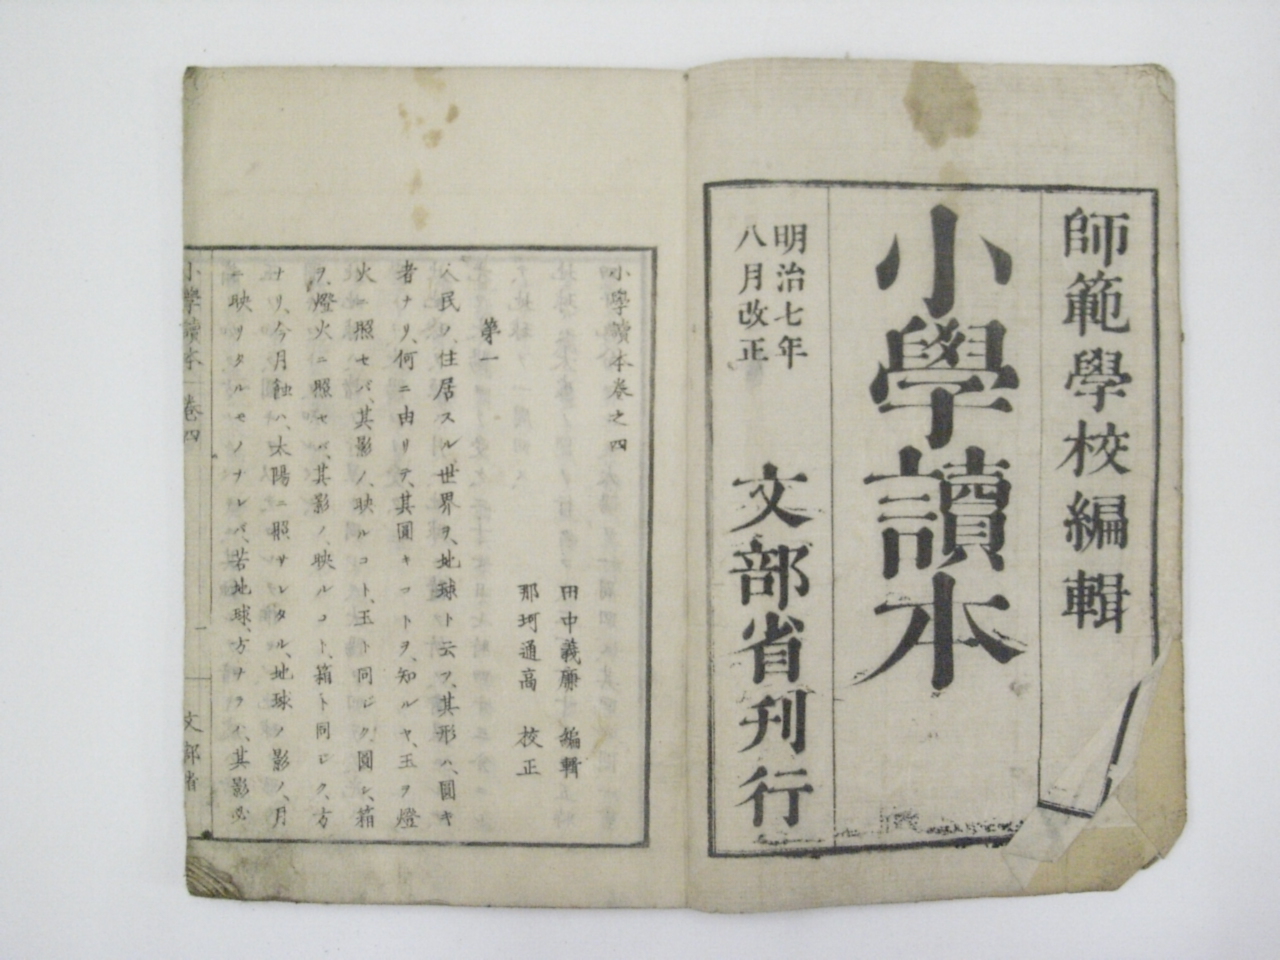 師範學校編輯
小學讀本
明治七年
八月改正
文部省刊行
小學讀本卷之四
田中義廉 編輯
那珂通高 校正
第一
人民ノ、住居スル、世界ヲ、地球ト云フ、其形ハ、圓キ
者ナリ、何ニ由リテ、其圓キコトヲ、知ルヤ、玉ヲ燈
火ニ照セバ、其影ノ、映ルコト、玉ト同ジク圓シ、箱
ヲ、燈火ニ照セバ、其影ノ、映ルコト、箱ト同ジク、方
ナリ、今月蝕ハ、太陽ニ照サレタル、地球ノ影ノ、月
ニ映ヲタルモノナレバ、若地球、方ナラバ、其影必
小學讀本 卷四 一 文部省